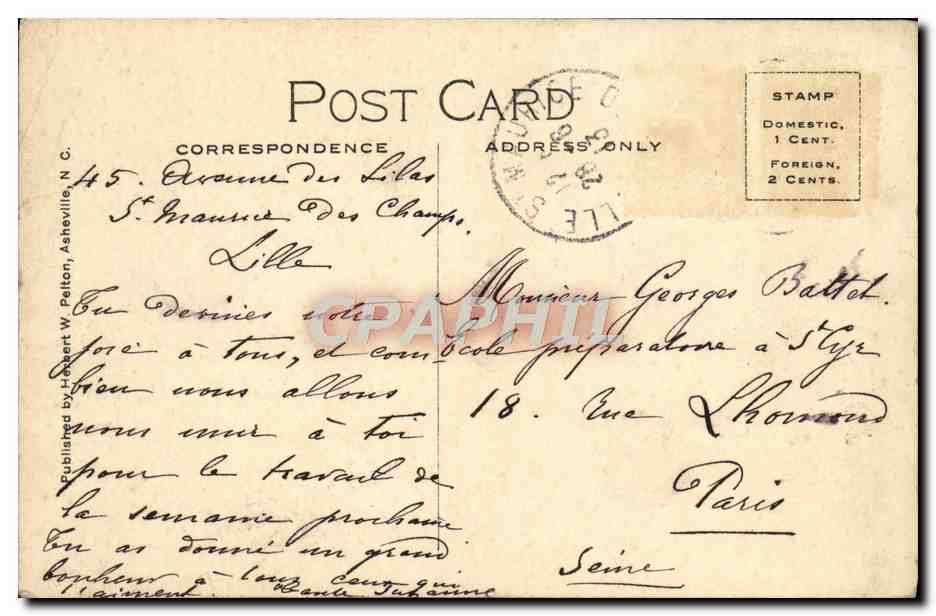 POST CARD
CORRESPONDENCE
ADDRESS ONLY
STAMP
DOMESTIC,
1 CENT.
FOREIGN,
2 CENTS.
Published by Herbert W. Pelton, Asheville, N C.
45. Avenue des Lilas
St Maurice des Champs.
Lille
Tu devines notre
joie à tous, et com-
bien nous allons
nous unir à toi
pour le travail de
la semaine prochaine
Tu as donné un grand
bonheur à tous ceux qui
t'aiment. Tante Suzanne
Monsieur Georges Battet.
École préparatoire à St Cyr
18. Rue Lhomond
Paris
Seine
CPAPHIL